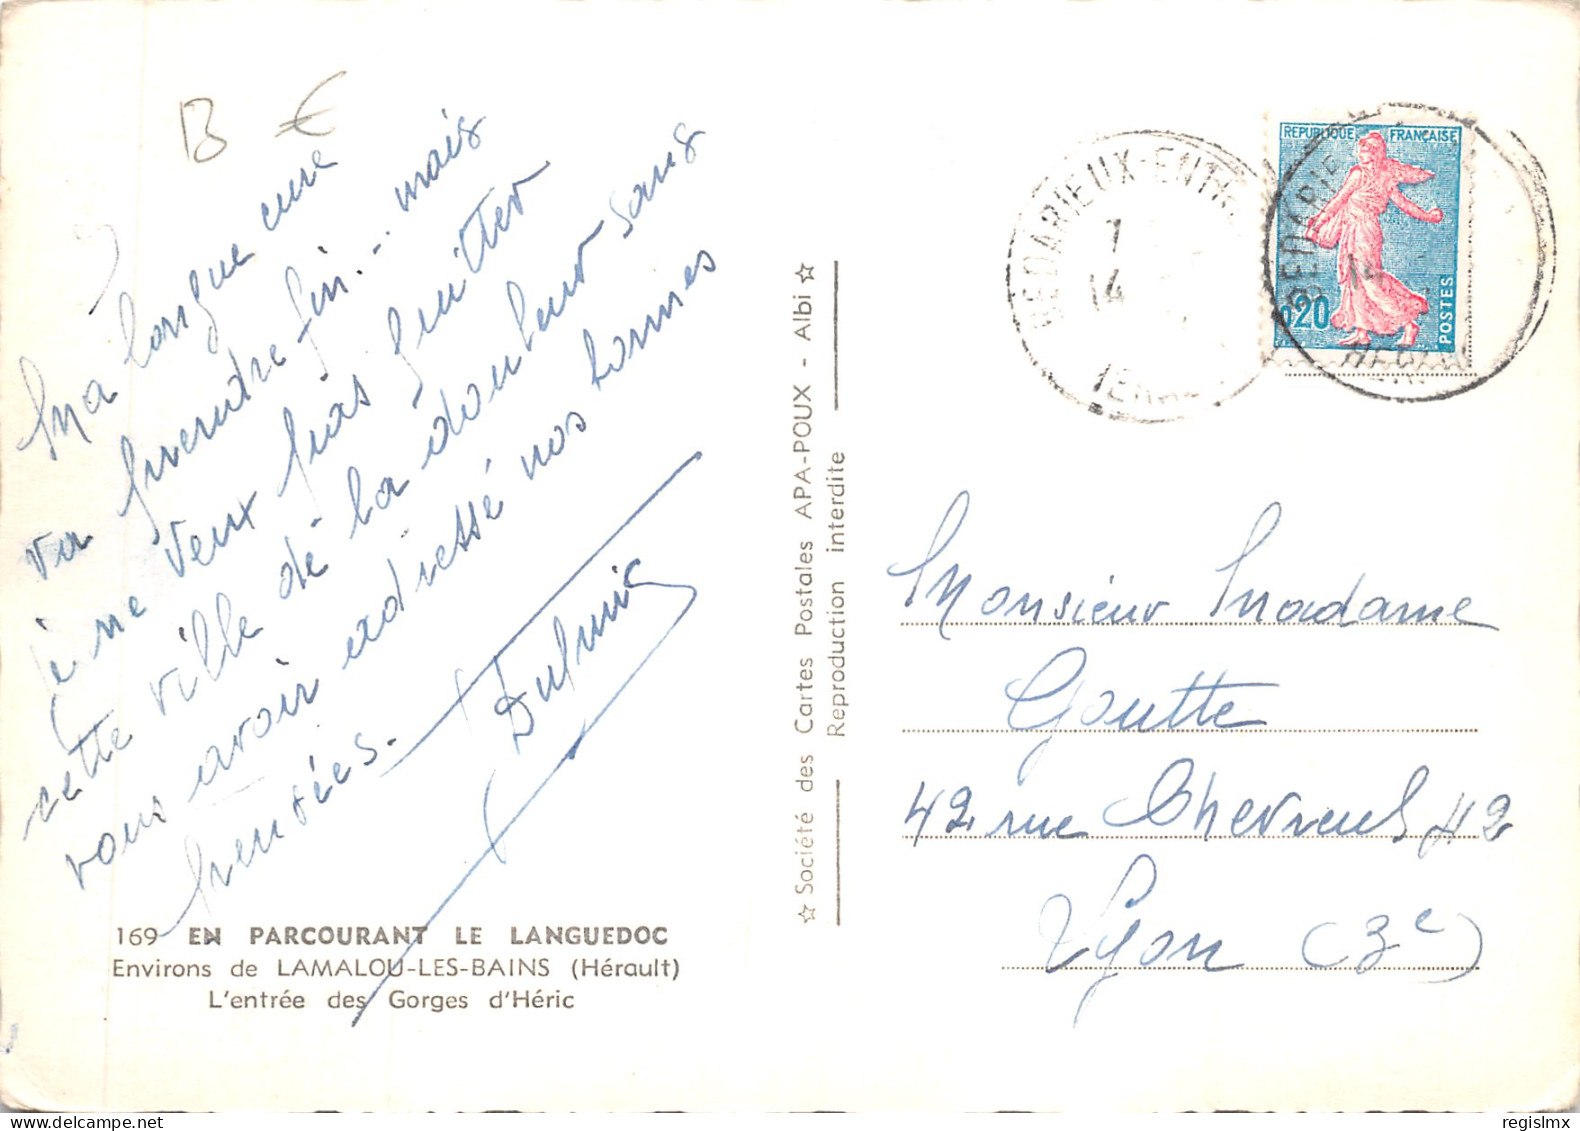 B €
Ma longue cure
va prendre fin.- mais
je ne veux pas quitter
cette ville de la douleur sans
vous avoir adressé nos bonnes
pensées.-
169 EN PARCOURANT LE LANGUEDOC
Environs de LAMALOU-LES-BAINS (Hérault)
L'entrée des Gorges d'Héric
☆ Société des Cartes Postales APA-POUX - Albi ☆
Reproduction interdite
BEDARIEUX-ENTR
14
REPUBLIQUE FRANÇAISE
0,20
POSTES
BEDARIE
Monsieur Madame
Goutte
42 rue Chevreul 42
Lyon (3e)
regislmx